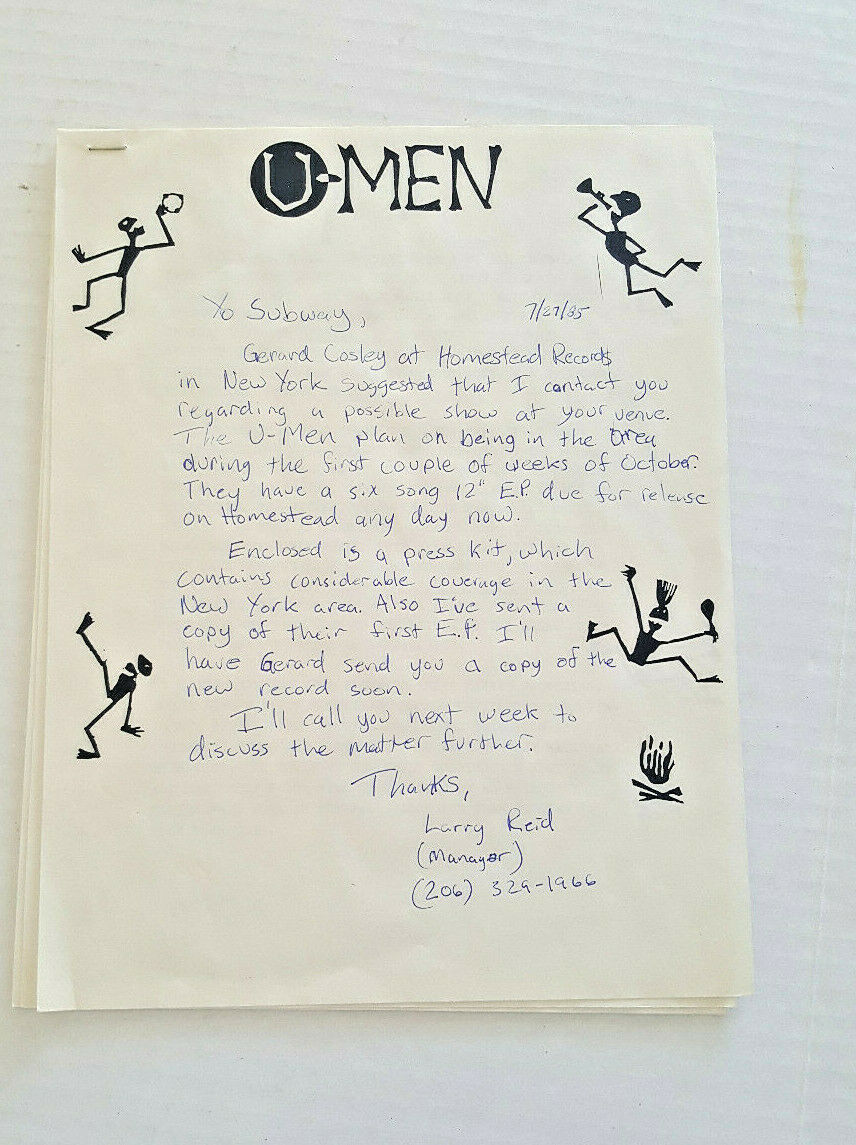 U-MEN
Yo Subway,
7/27/85
Gerard Cosley at Homestead Records
in New York suggested that I contact you
regarding a possible show at your venue.
The U-Men plan on being in the area
during the first couple of weeks of October.
They have a six song 12" E.P. due for release
on Homestead any day now.
Enclosed is a press kit, which
contains considerable coverage in the
New York area. Also I've sent a
copy of their first E.P. I'll
have Gerard send you a copy of the
new record soon.
I'll call you next week to
discuss the matter further.
Thanks,
Larry Reid
(Manager)
(206) 329-1966